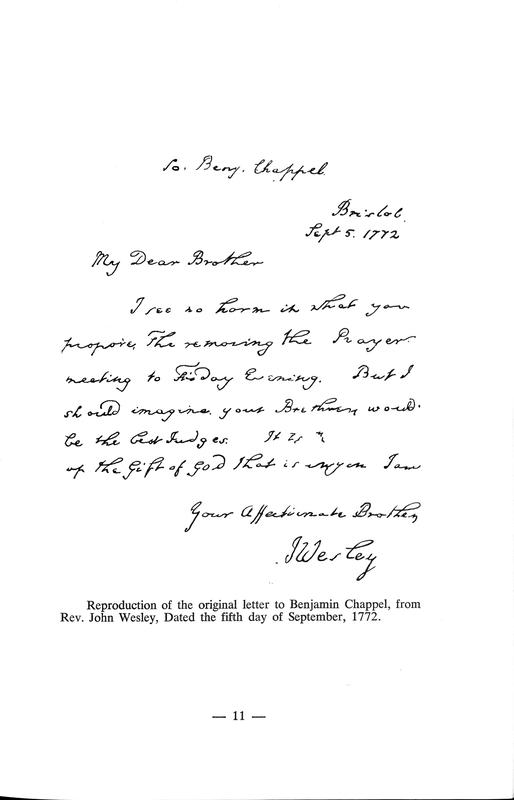 To. Benj. Chappel
Bristol.
Sept 5. 1772
My Dear Brother
I see no harm in what you
propose, The removing the Prayer
meeting to Friday Evening. But I
should imagine, your Brethren would
be the best Judges. It is
up the Gift of God that is in you I am
Your Affectionate Brother
JWesley
Reproduction of the original letter to Benjamin Chappel, from
Rev. John Wesley, Dated the fifth day of September, 1772.
— 11 —